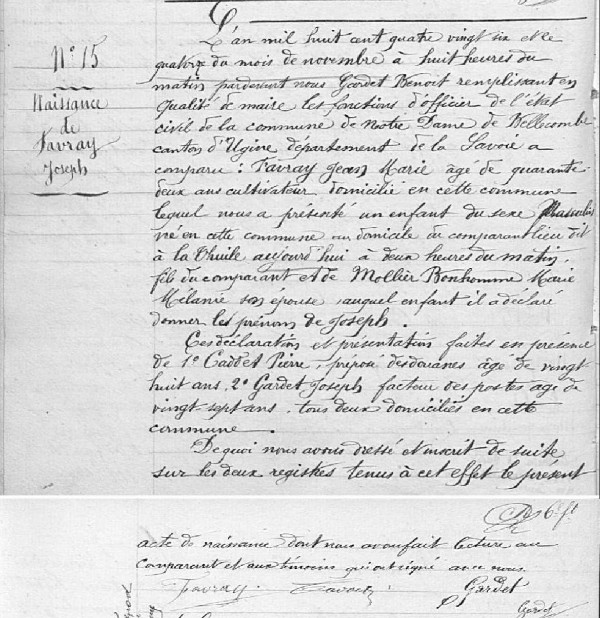 N° 15
Naissance
de
Favray
Joseph
L'an mil huit cent quatre vingt six et le
quatorze du mois de novembre à huit heures du
matin pardevant nous Gardet Benoit remplissant en
qualité de maire les fonctions d'officier de l'état
civil de la commune de Notre Dame de Bellecombe
canton d'Ugine département de la Savoie a
comparu : Favray Jean Marie âgé de quarante
deux ans cultivateur domicilié en cette commune
lequel nous a présenté un enfant du sexe Masculin
né en cette commune au domicile du comparant lieu dit
à la Thuile aujourd'hui à deux heures du matin,
fils du comparant et de Mollier Bonhomme Marie
Mélanie son épouse auquel enfant il a déclaré
donner les prénoms de Joseph .
Ces déclaration et présentation faites en présence
de 1° Caddet Pierre, préposé des douanes âgé de vingt
huit ans, 2° Gardet Joseph facteur des postes âgé de
vingt-sept ans, tous deux domiciliés en cette
commune .
De quoi nous avons dressé et inscrit de suite
sur les deux registres tenus à cet effet le présent
acte de naissance dont nous avons fait lecture au
comparant et aux témoins qui ont signé avec nous.
Favray Gardet
Gardet